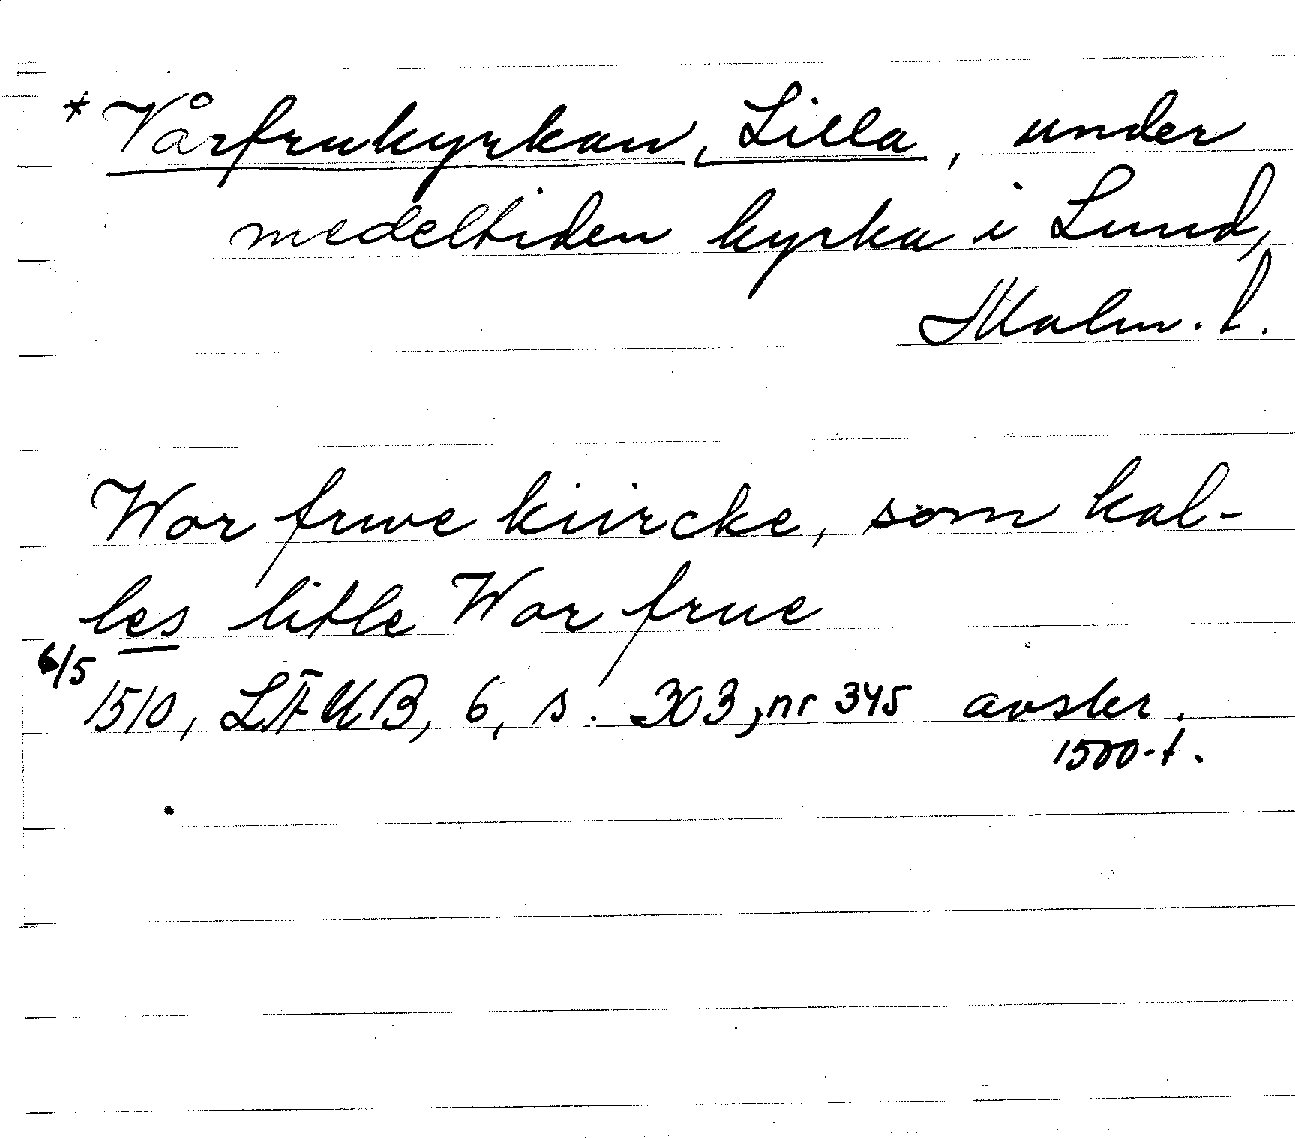 * Vårfrukyrkan, Lilla, under
medeltiden kyrka i Lund,
Malm. l.
Wor frwe kiircke, som kal-
les litle Wor frue
6/5 1510, LÄUB, 6, s. 303, nr 345 avskr.
1500-t.